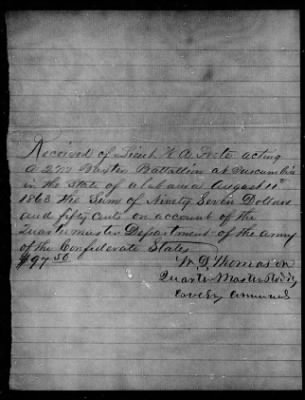 Received of Lieut W A Forte acting
A 2 M Baxter Battallion at Tuscumbia
in the State of alabama August 11th
1863 the Sum of Ninety Seven Dollars
and fifty Cents on account of the
Quartermaster Department of the army
of the Confederate States
$97.50
W D Thomason
Quarter Master Roddy
Cavelry